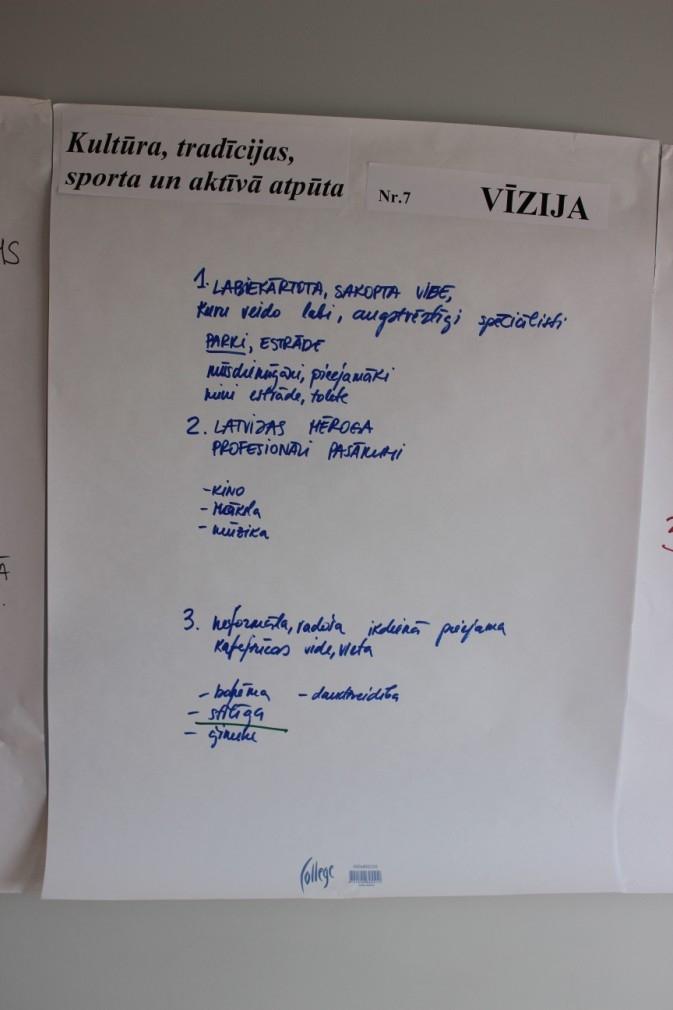 Kultūra, tradīcijas,
sporta un aktīvā atpūta
Nr.7 VĪZIJA
1. LABIEKĀRTOTA, SAKOPTA VIDE,
kuru veido labi, augstvērtīgi speciālisti
PARKI, ESTRĀDE
mūsdienīgāki, pieejamāki
mini estrāde, tolete
2. LATVIJAS MĒROGA
PROFESIONĀLI PASĀKUMI
- KINO
- Māksla
- mūzika
3. neformāla, radoša ikdienā pieejama
kafejnīcas vide, vieta
- bohēma - daudzveidība
- stilīga
- ģimene
College